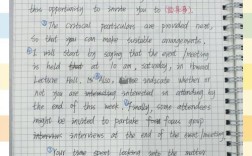 this opportunity to invite you to [
② The critical particulars are provided now,
so that you can make suitable arrangements.
I will start by saying that the event / meeting
is held at 10 am, saturday, in Howard
Lecture Hall. Also, indicate whether or
not you are interested in attending by
the end of this week. Finally, some attendees
might be invited to partake focus group
interviews at the end of the event/meeting
Your time spent looking into the matter